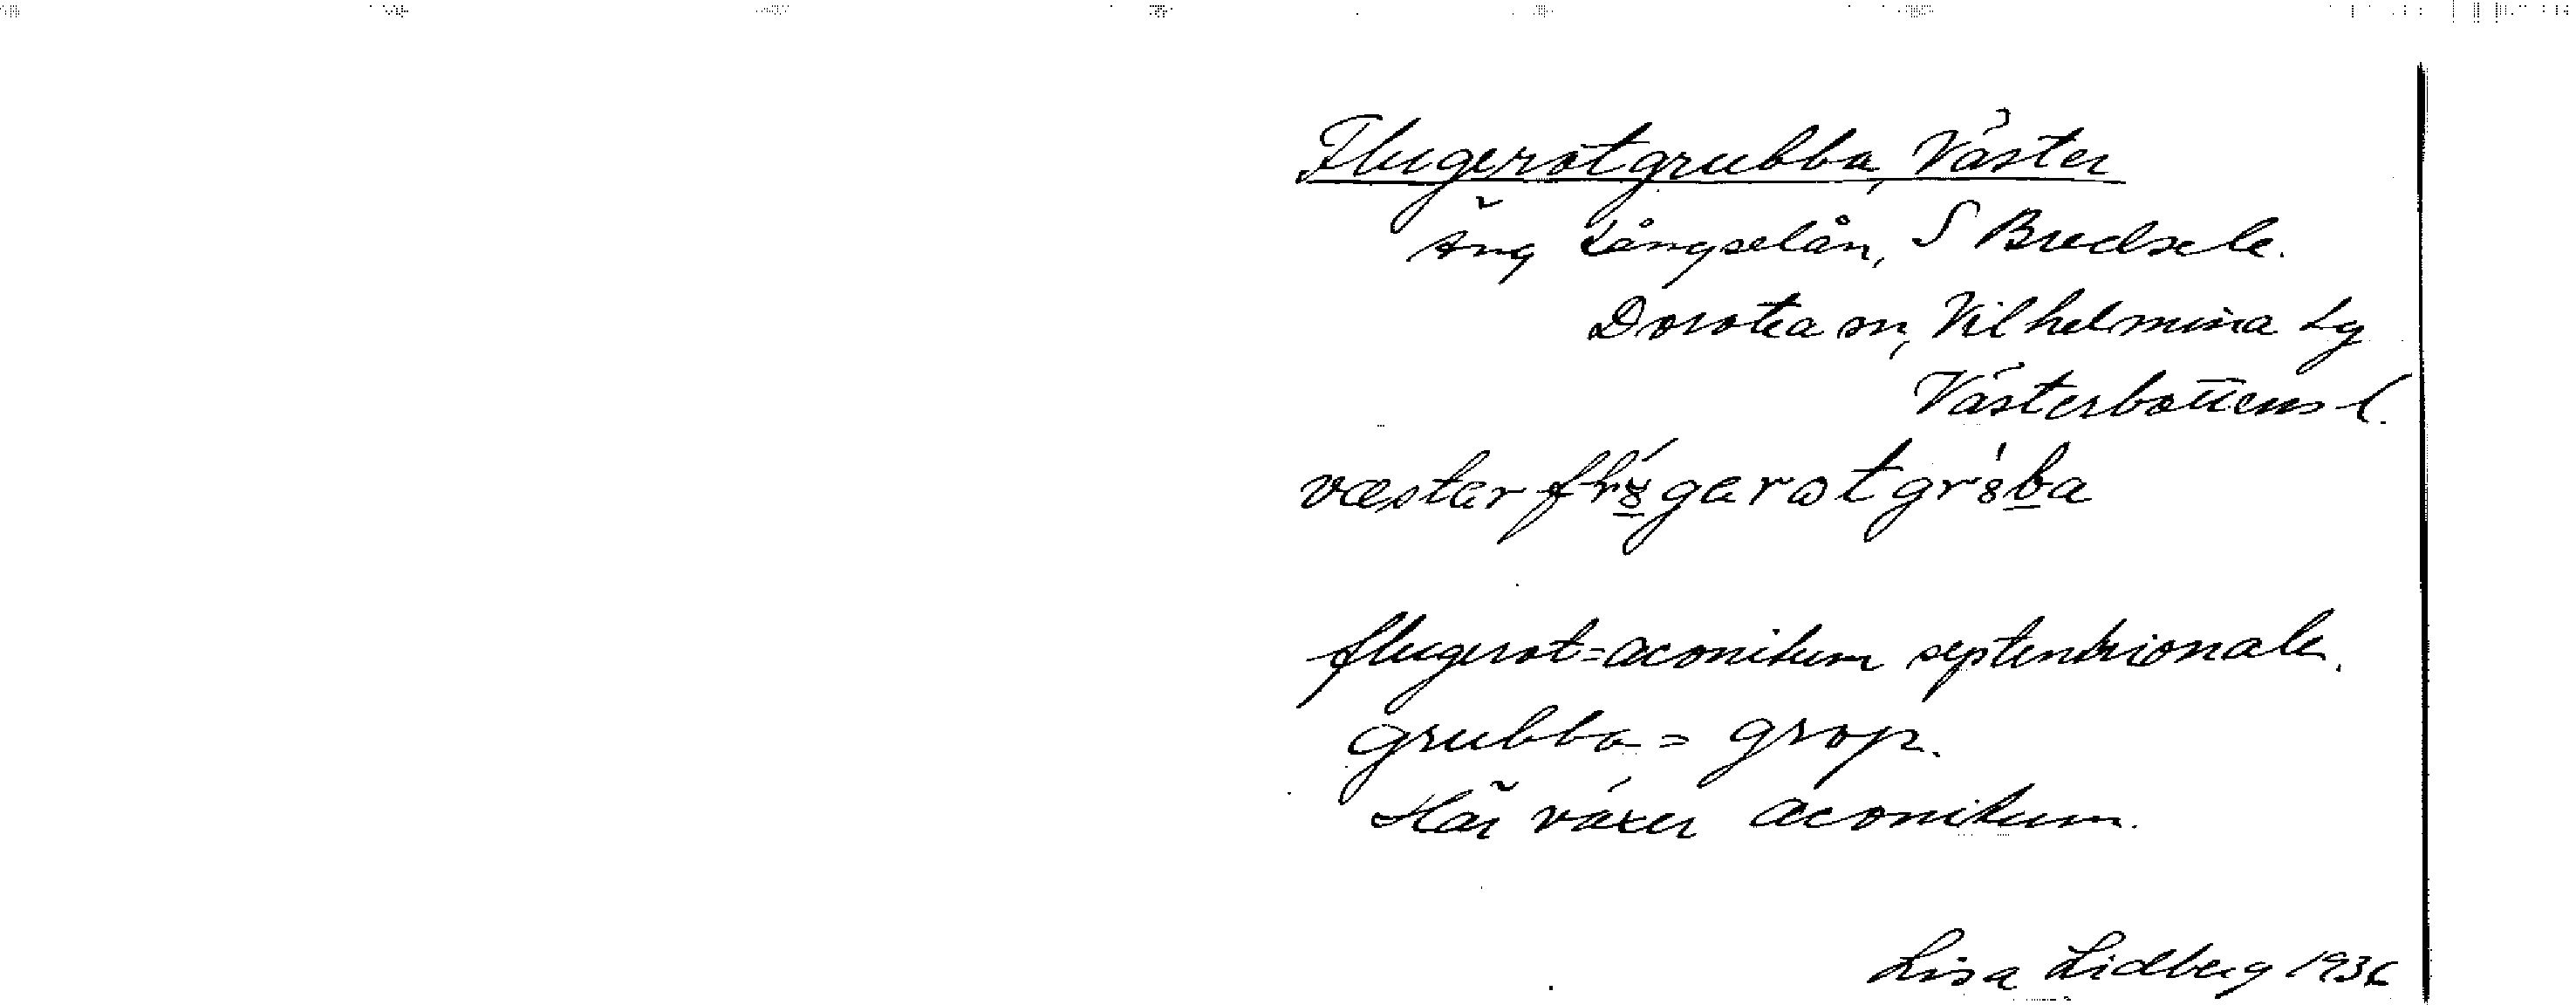 Flugerotgrubba, Väster
Äng Långselån, S Bredsele.
Dorotea sn, Vilhelmina lg
Västerbottens l.
flugerot = aconitum septentrionale.
grubba = grop.
Här växer aconitum.
Lisa Lidberg 1936